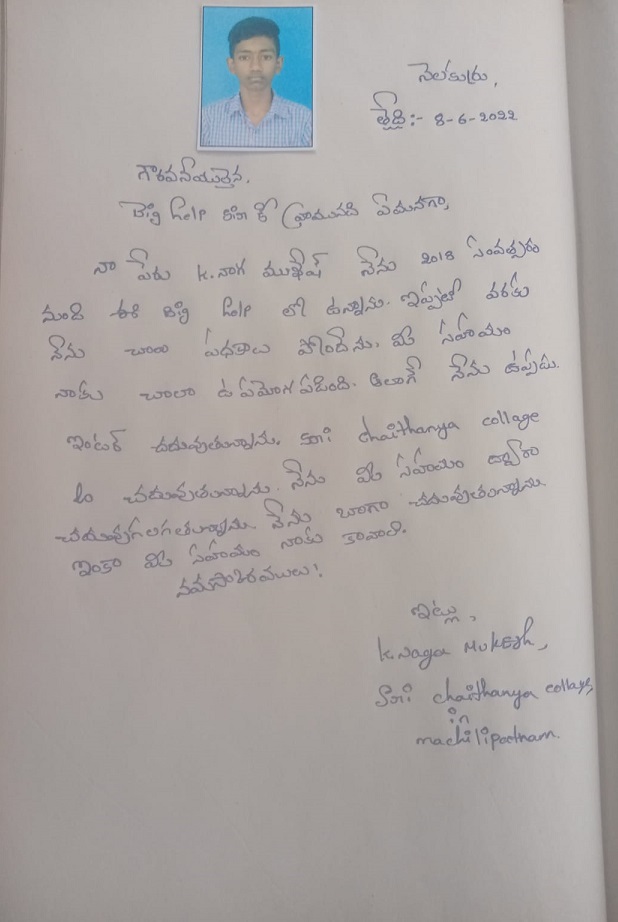 నెలకుర్రు,
తేది:- 8-6-2022
గౌరవనీయులైన,
బిగ్గి help టిం కీ వ్రాయునది ఏమనగా,
నా పేరు K.నాగ ముఖేష్ నేను 2018 సంవత్సరం
నుండి ఈ బిగ్గి help లో ఉన్నాను. ఇప్పటి వరకు
నేను చాలా పధకాలు పొందేను. మీ సహాయం
నాకు చాలా ఉపయోగపడింది. అలాగే నేను ఇప్పుడు.
ఇంటర్ చదువుతున్నాను. Sri chaithanya collage
లో చదువుతున్నాను. నేను మీ సహాయం ద్వారా
చదువుగలగతున్నాను. నేను బాగా చదువుతున్నాను.
ఇంకా మీ సహాయం నాకు కావాలి.
నమస్కారములు!
ఇట్లు,
K.Naga Mukesh,
Sri chaithanya collage,
in
machilipatnam.